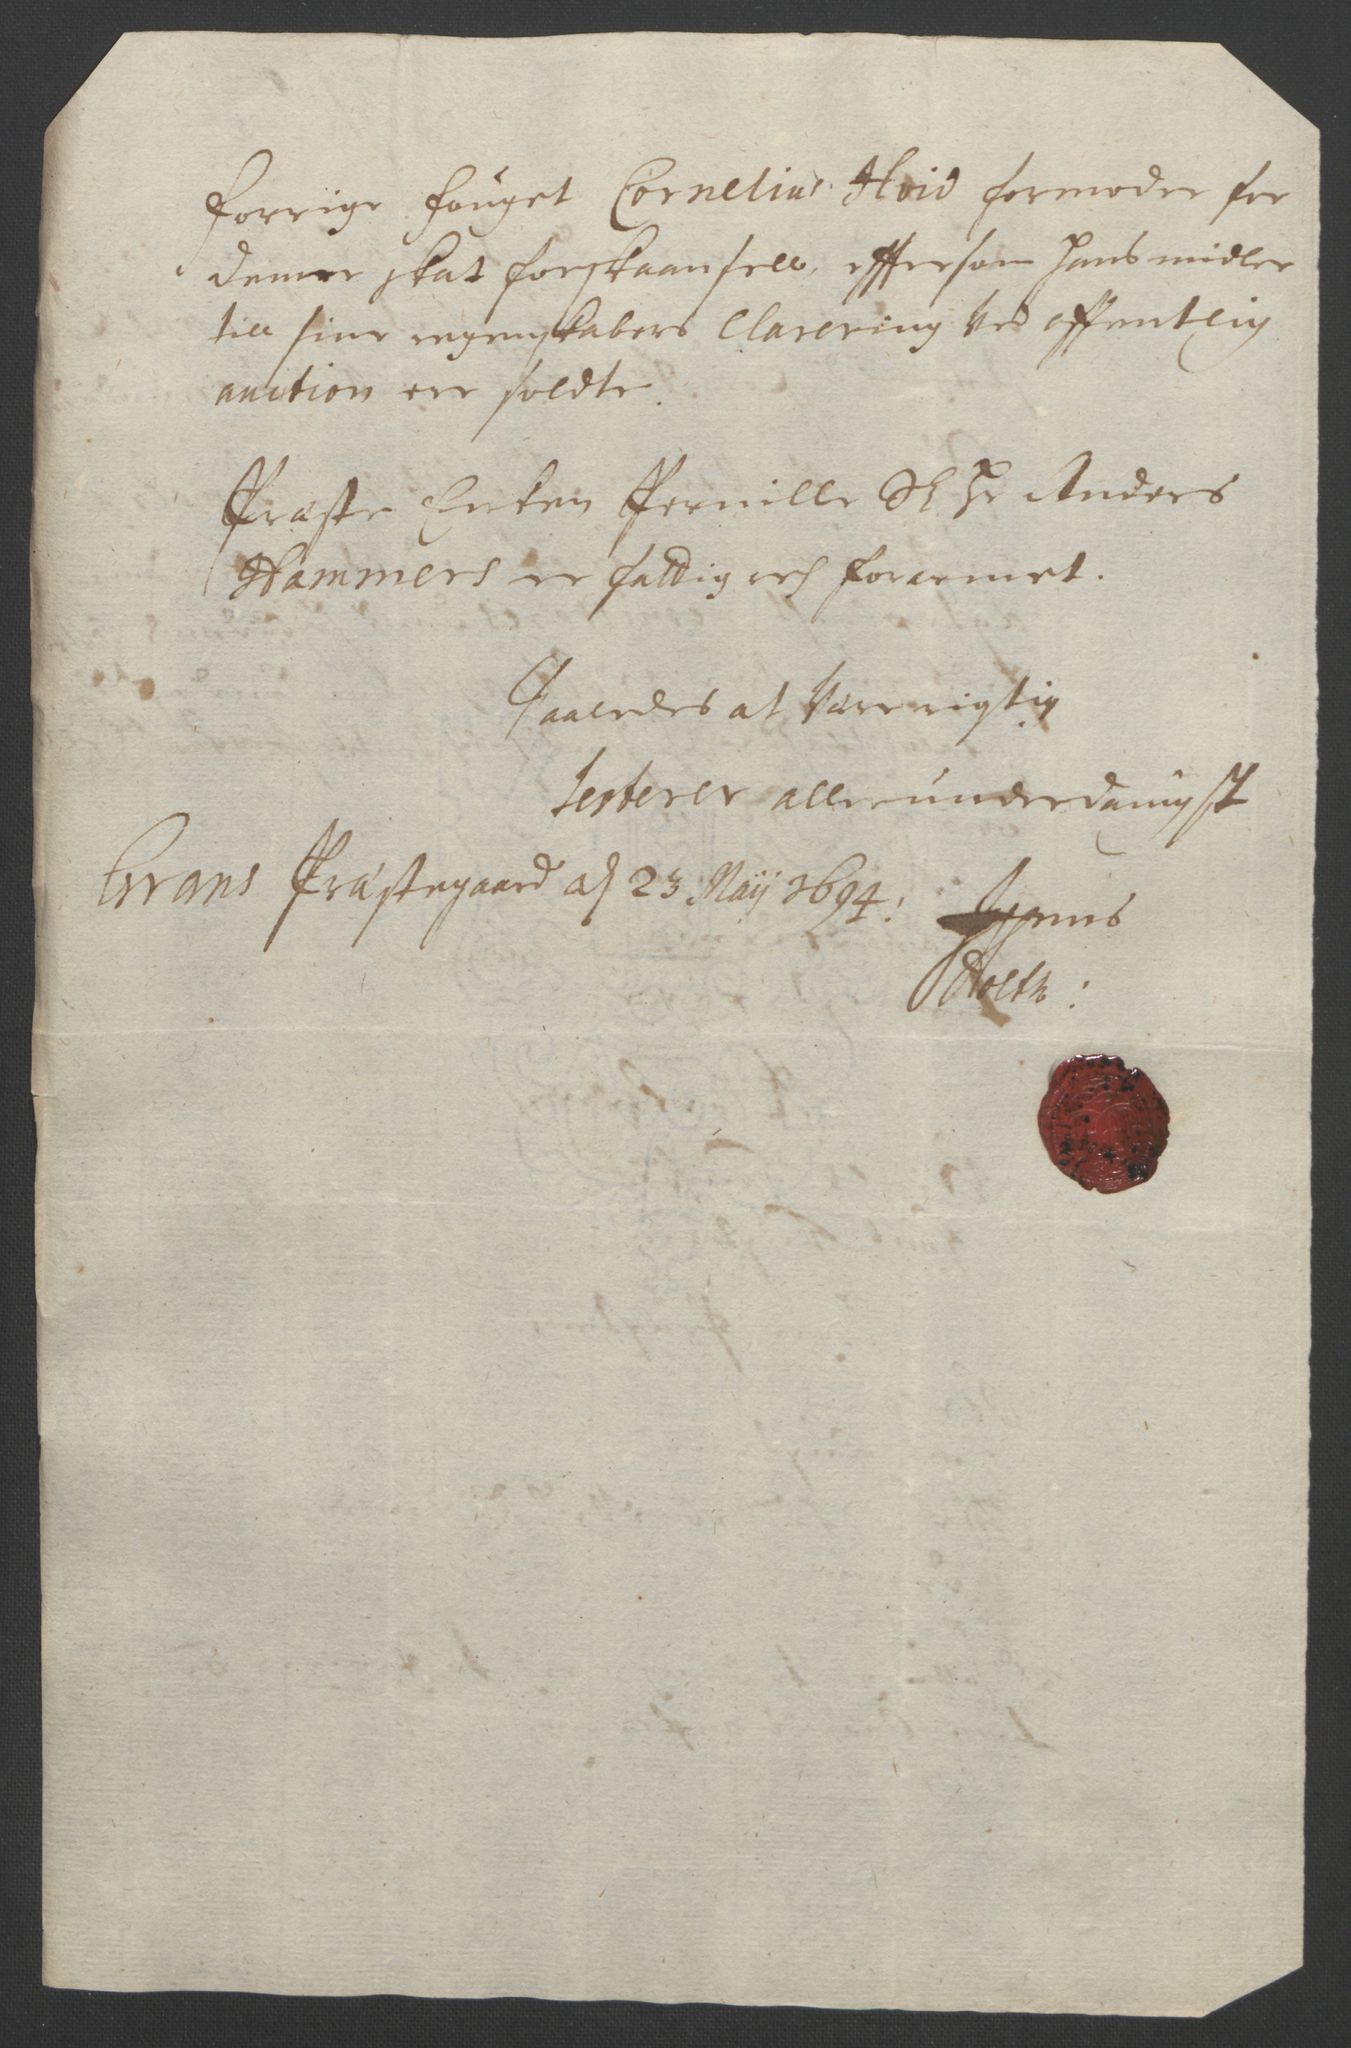 forrige fouget Cornelius Hvid formoder for
denne skat forskaansell, effersom hans midler
till sine regenskabers Clarering ved offentlig
auction ere soldte.
Præste Encken Pernille Sl Hr Anders
Hammers er fattig och forarmet.
Saaledes at Være rigtig
testerer allerunderdanigst
Grans Præstegaard d 23 Maij 1694: